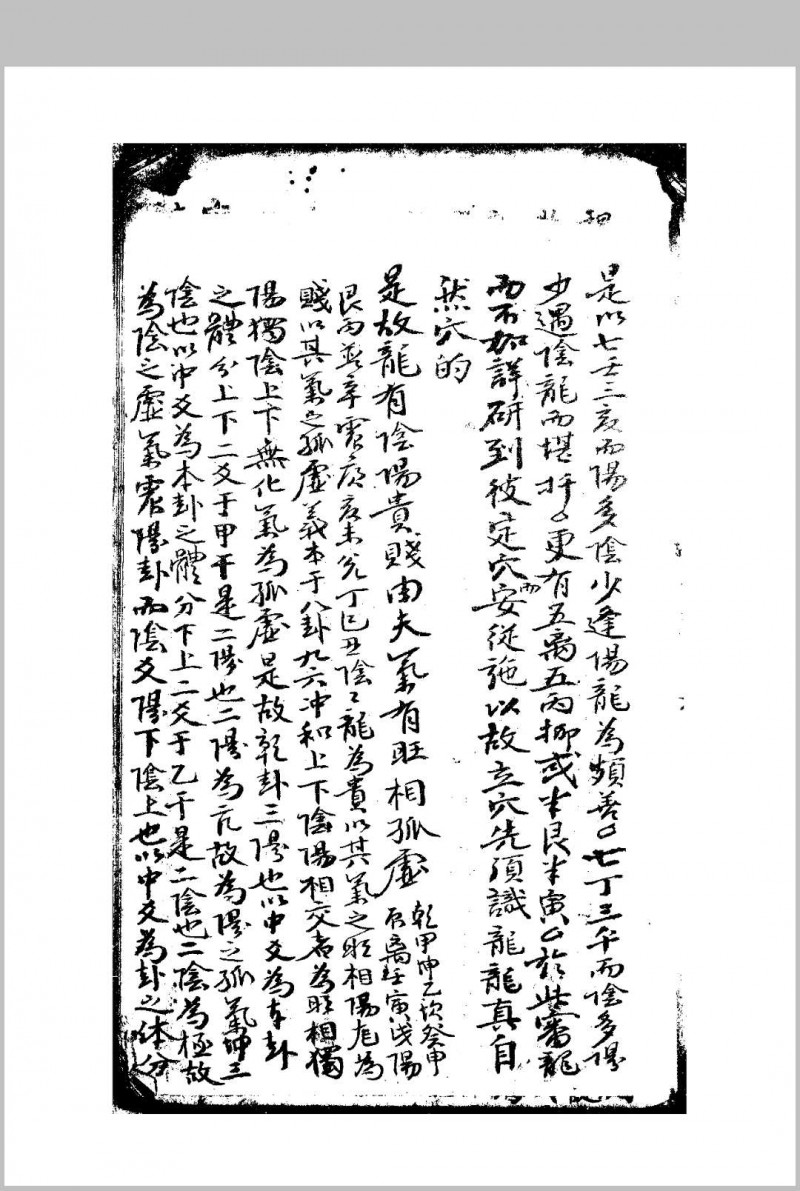 是以七壬三亥而陽多陰少逢陽龍為頗善七丁三午而陰多陽
少遇陰龍而堪扦更有五丙抑或半艮半寅於此審龍
而不加詳研到彼定穴而安從施以故立穴先須識龍龍真自
然穴的
是故龍有陰陽貴賤由夫氣有旺相孤虛
乾甲坤乙坎癸申
辰離壬寅戌陽
艮丙巽辛震庚亥未兌丁巳丑陰之龍為貴以其氣之旺相陽龙為
賤以其氣之孤虛義本于八卦九六冲和上下陰陽相交者為旺相獨
陽獨陰上下無化氣為孤虛是故乾卦三陽也以中爻為本卦
之體分上下二爻于甲干是二陽也二陽為亢故為陽之孤氣坤三
陰也以中爻為本卦之體分下上二爻于乙干是二陰也二陰為極故
為陰之虛氣震陽卦而陰爻陽下陰上也以中爻為卦之体分